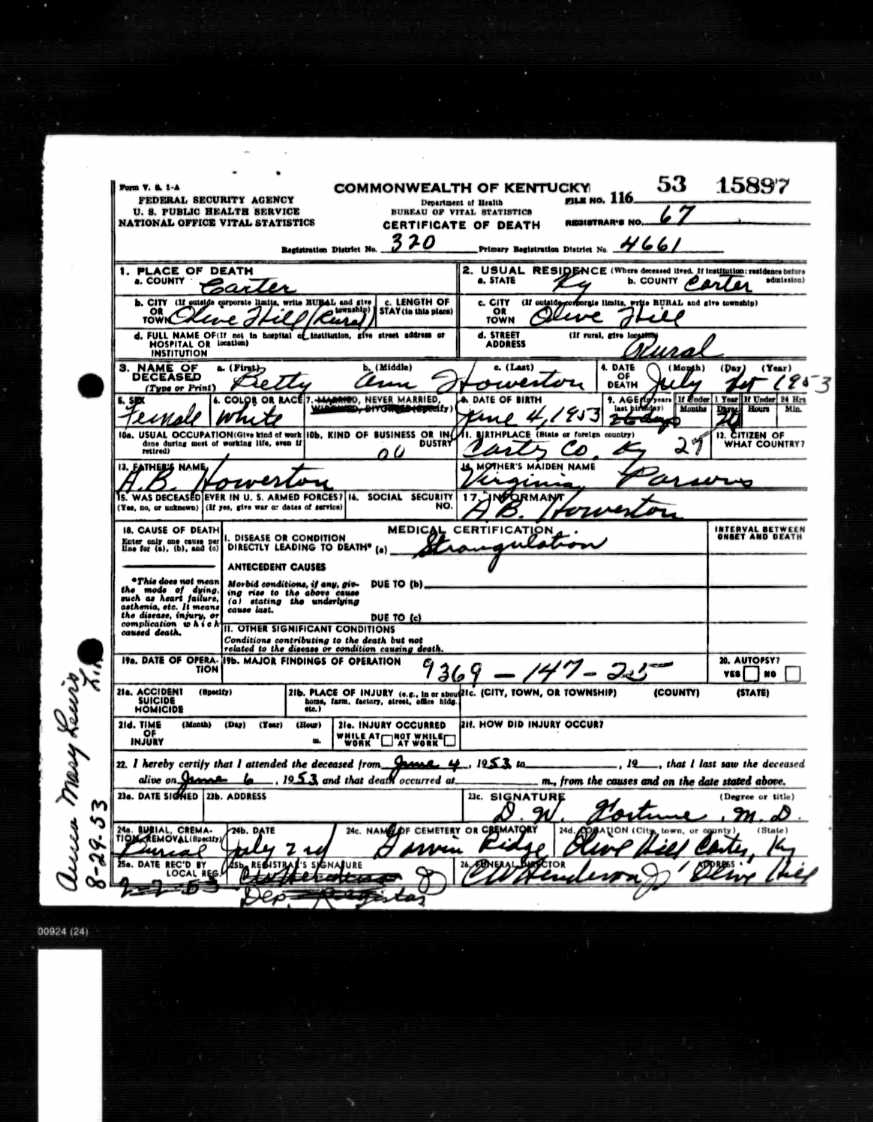 Form V. S. 1-A
FEDERAL SECURITY AGENCY
U. S. PUBLIC HEALTH SERVICE
NATIONAL OFFICE VITAL STATISTICS
COMMONWEALTH OF KENTUCKY
Department of Health
BUREAU OF VITAL STATISTICS
CERTIFICATE OF DEATH
FILE NO. 116 53 15897
REGISTRAR'S NO. 67
Registration District No. 320 Primary Registration District No. 4661
1. PLACE OF DEATH
a. COUNTY Carter
2. USUAL RESIDENCE (Where deceased lived. If institution: residence before admission)
a. STATE Ky b. COUNTY Carter
b. CITY (If outside corporate limits, write RURAL and give township) OR TOWN Olive Hill (Rural)
c. LENGTH OF STAY (in this place)
c. CITY (If outside corporate limits, write RURAL and give township) OR TOWN Olive Hill
d. FULL NAME OF (If not in hospital or institution, give street address or location) HOSPITAL OR INSTITUTION
d. STREET ADDRESS (If rural, give location) Rural
3. NAME OF DECEASED (Type or Print) a. (First) Betty b. (Middle) Ann c. (Last) Howerton
4. DATE OF DEATH (Month) (Day) (Year) July 1st 1953
5. SEX Female
6. COLOR OR RACE White
7. MARRIED, NEVER MARRIED, WIDOWED, DIVORCED (Specify)
8. DATE OF BIRTH June 4, 1953
9. AGE (In years last birthday) 26 days If Under 1 Year Months Days If Under 24 Hrs Hours Min.
10a. USUAL OCCUPATION (Give kind of work done during most of working life, even if retired)
10b. KIND OF BUSINESS OR INDUSTRY 00
11. BIRTHPLACE (State or foreign country) Carter Co. Ky 25
12. CITIZEN OF WHAT COUNTRY?
13. FATHER'S NAME A. B. Howerton
14. MOTHER'S MAIDEN NAME Virginia Parsons
15. WAS DECEASED EVER IN U. S. ARMED FORCES? (Yes, no, or unknown) (If yes, give war or dates of service)
16. SOCIAL SECURITY NO.
17. INFORMANT A.B. Howerton
18. CAUSE OF DEATH
Enter only one cause per line for (a), (b), and (c)
MEDICAL CERTIFICATION
INTERVAL BETWEEN ONSET AND DEATH
I. DISEASE OR CONDITION DIRECTLY LEADING TO DEATH* (a) Strangulation
ANTECEDENT CAUSES
*This does not mean the mode of dying, such as heart failure, asthenia, etc. It means the disease, injury, or complication which caused death.
Morbid conditions, if any, giving rise to the above cause (a) stating the underlying cause last.
DUE TO (b)
DUE TO (c)
II. OTHER SIGNIFICANT CONDITIONS
Conditions contributing to the death but not related to the disease or condition causing death.
19a. DATE OF OPERATION
19b. MAJOR FINDINGS OF OPERATION 9369 - 147 - 25
20. AUTOPSY? YES NO
21a. ACCIDENT SUICIDE HOMICIDE (Specify)
21b. PLACE OF INJURY (e.g., in or about home, farm, factory, street, office bldg. etc.)
21c. (CITY, TOWN, OR TOWNSHIP) (COUNTY) (STATE)
21d. TIME OF INJURY (Month) (Day) (Year) (Hour) m.
21e. INJURY OCCURRED WHILE AT WORK NOT WHILE AT WORK
21f. HOW DID INJURY OCCUR?
22. I hereby certify that I attended the deceased from June 4, 1953 to , 19 , that I last saw the deceased
alive on June 6, 1953 and that death occurred at m., from the causes and on the date stated above.
23a. DATE SIGNED
23b. ADDRESS
23c. SIGNATURE (Degree or title) D. W. Fortune, M. D.
24a. BURIAL, CREMATION, REMOVAL (Specify) Burial
24b. DATE July 2nd
24c. NAME OF CEMETERY OR CREMATORY Garvin Ridge
24d. LOCATION (City, town, or county) (State) Olive Hill Carter, Ky
25a. DATE REC'D BY LOCAL REG.
25b. REGISTRAR'S SIGNATURE
Dep. Registrar
26. FUNERAL DIRECTOR ADDRESS CW Henderson Jr Olive Hill
Anna Mary Lewis
8-29-53
00924 (24)